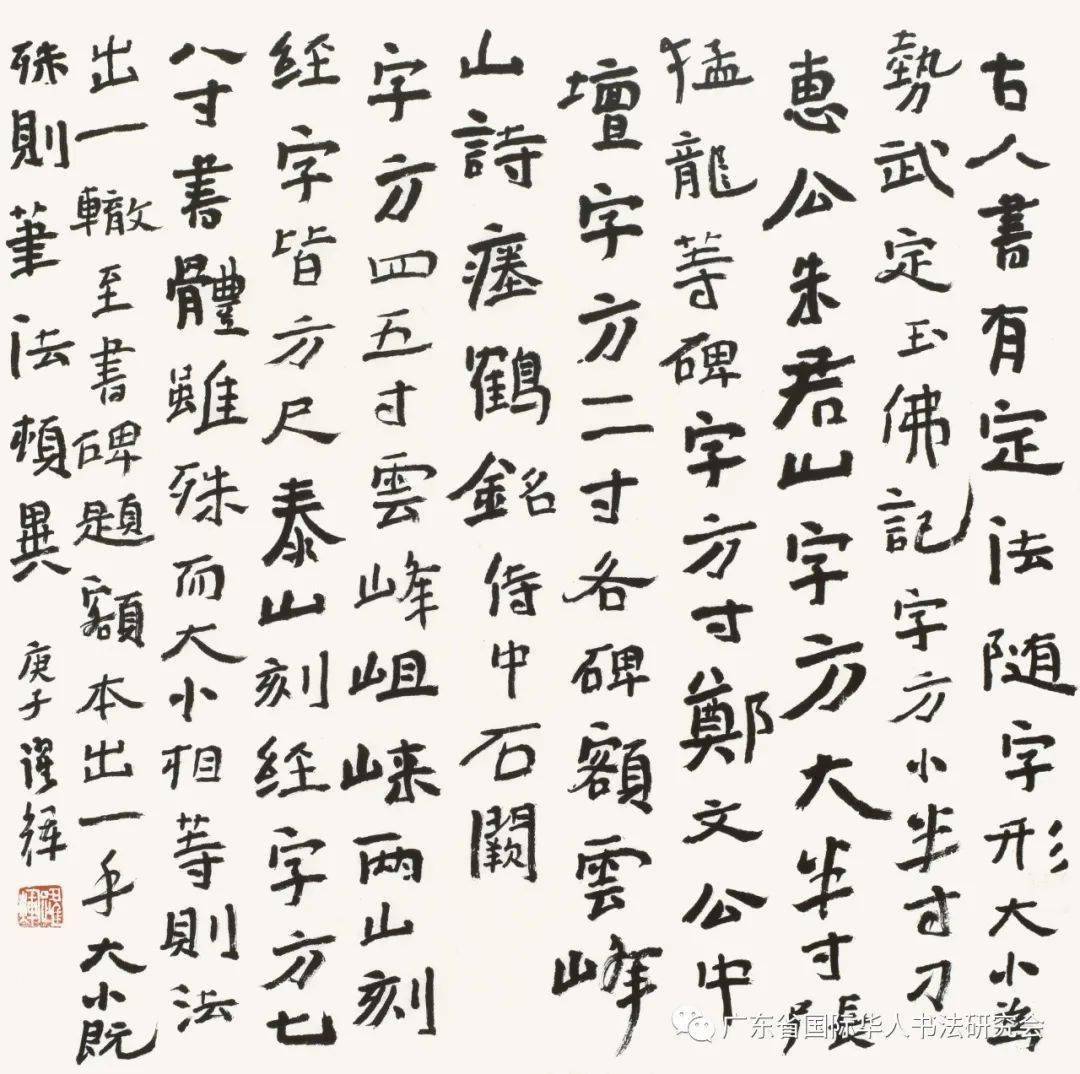 古人書有定法随字形大小為
勢武定玉佛記字方小半寸刁
惠公朱君山字方大半寸張
猛龍等碑字方寸鄭文公中
壇字方二寸各碑額雲峰
山詩瘞鶴銘侍中石闕
字方四五寸雲峰岨崍两山刻
经字皆方尺泰山刻经字方七
八寸書體雖殊而大小相等則法
出一轍至書碑題額本出一手大小既
殊則筆法頓異 庚子
广东省国际华人书法研究会